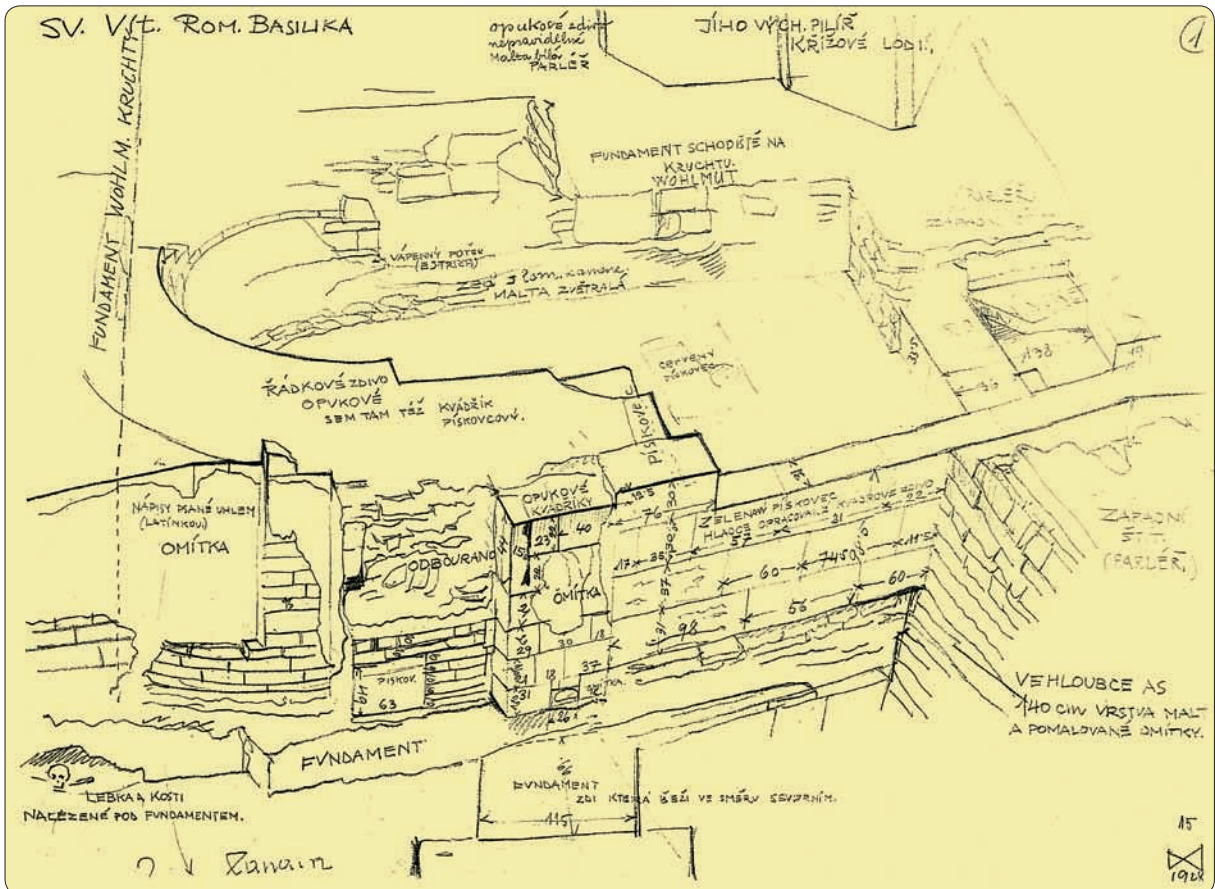 SV. VÍT. ROM. BASILIKA
opukové zdivo
nepravidelné
Malta bílá
PARLÉŘ
JÍHO VÝCH. PILÍŘ
KŘÍŽOVÉ LODI,
1
FUNDAMENT WOHLM. KRUCHTY
FUNDAMENT SCHODIŠTĚ NA
KRUCHTU.
WOHLMUT
PARLÉŘ
VÁPENNÝ POTĚR
(ESTRICH)
ZEĎ z lom. kamene
MALTA ZVĚTRALÁ
ČERVENÝ
PÍSKOVEC
138
96
ŘÁDKOVÉ ZDIVO
OPUKOVÉ
SEM TAM TÉŽ KVÁDŘÍK
PÍSKOVCOVÝ.
PÍSKOVEC
NÁPISY PSANÉ UHLEM
(LATINKOU)
OMÍTKA
ODBOURANO
OPUKOVÉ
KVÁDŘÍKY
40
23
15
OMÍTKA
76
ZELENAVÝ PÍSKOVEC
HLADCE OPRACOVANÉ KVÁDROVÉ ZDIVO
17 35
57
31
22
60
7450
11·5
60
56
98
31
37
30
29
39
18
37
31
18
26
PÍSKOV.
63
49
ZÁPADNÍ
ŠTÍT.
(PARLÉŘ,)
VEHLOUBCE AS
140 CM VRSTVA MALT
A POMALOVANÉ OMÍTKY.
FUNDAMENT
LEBKA A KOSTI
NALEZENÉ POD FUNDAMENTEM.
FUNDAMENT
ZDI KTERÁ BĚŽÍ VE SMĚRU SEVERNÍM.
115
15